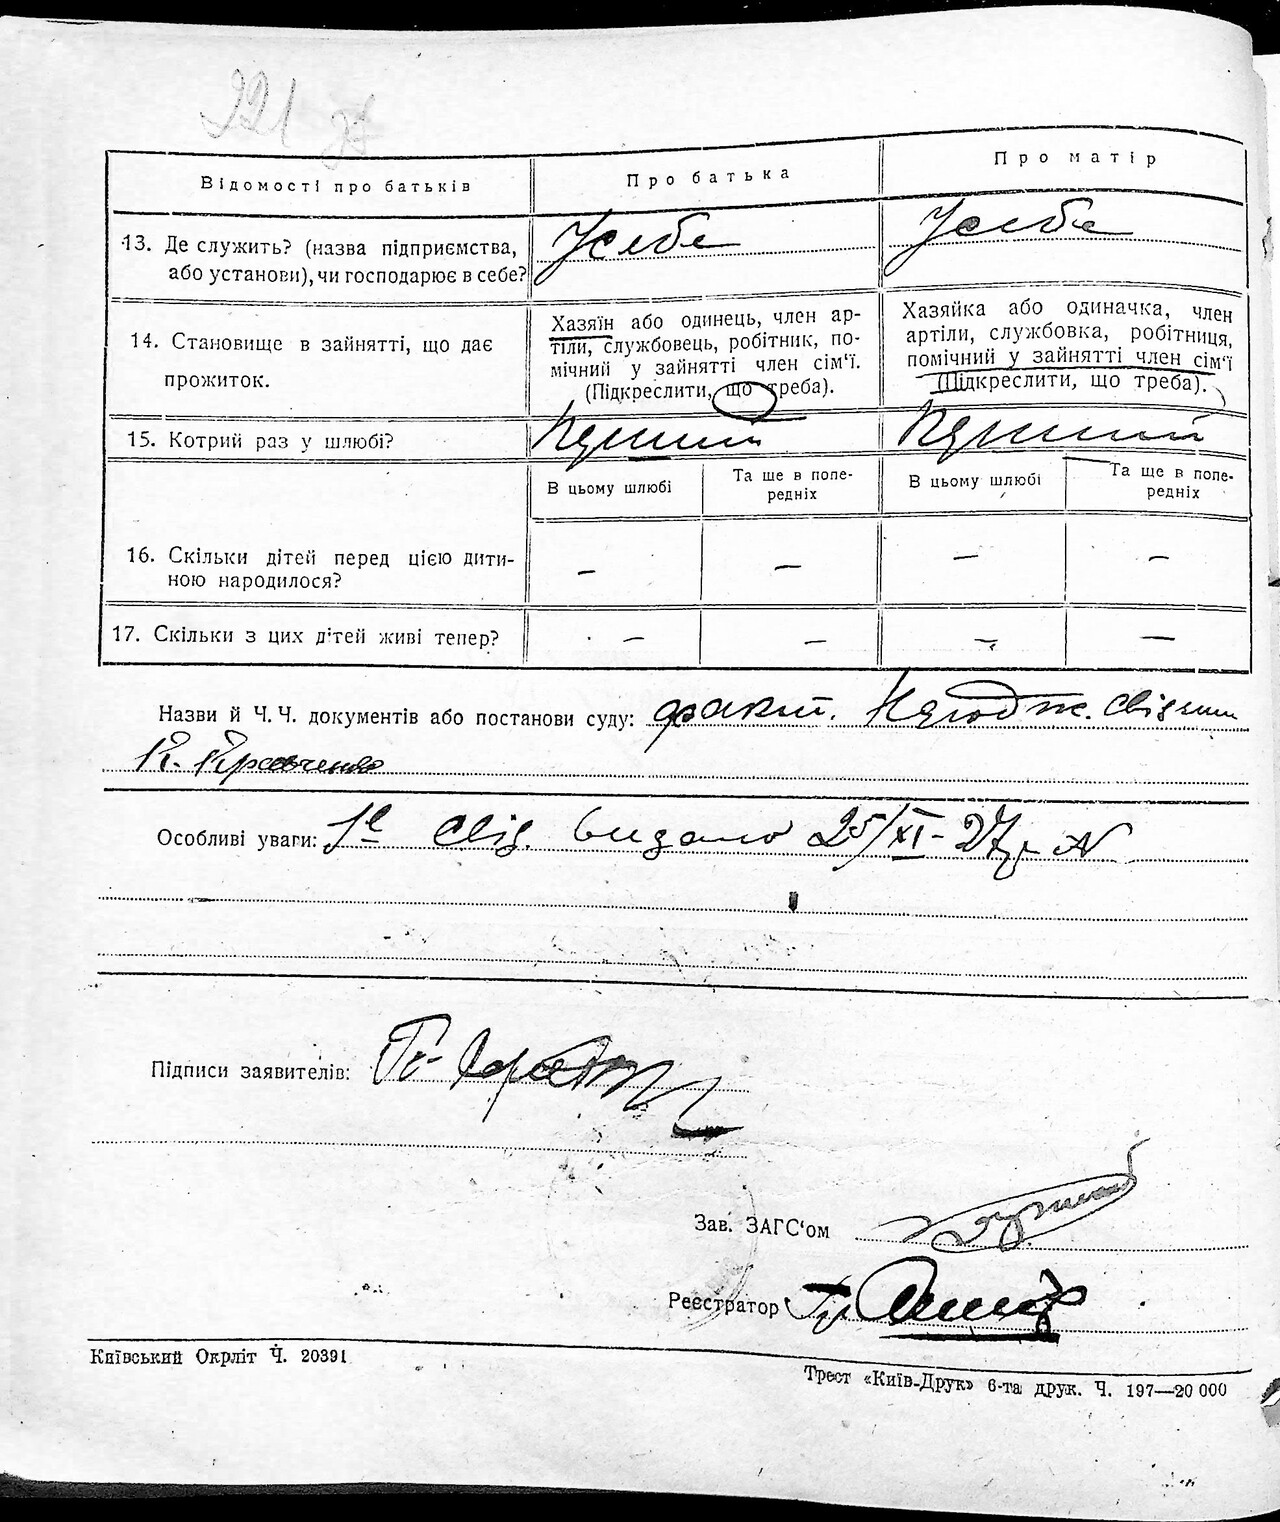 221
Відомості про батьків
Про батька
Про матір
13. Де служить? (назва підприємства, або установи), чи господарює в себе?
У себе
У себе
14. Становище в зайнятті, що дає прожиток.
Хазяїн або одинець, член ар-
тіли, службовець, робітник, по-
мічний у зайнятті член сім'ї.
(Підкреслити, що треба).
Хазяйка або одиначка, член
артіли, службовка, робітниця,
помічний у зайнятті член сім'ї
(Підкреслити, що треба).
15. Котрий раз у шлюбі?
Перший
Перший
В цьому шлюбі
Та ще в попе-
редніх
В цьому шлюбі
Та ще в попе-
редніх
16. Скільки дітей перед цією дити-
ною народилося?
—
—
—
—
17. Скільки з цих дітей живі тепер?
—
—
—
—
Назви й Ч. Ч. документів або постанови суду: факт. Народж.
К. Кравченко
Особливі уваги: свід. видано 25/XI-27р. N
Підписи заявителів:
Зав. ЗАГС'ом
Реєстратор
Київський Окрліт Ч. 20391
Трест «Київ-Друк» 6-та друк. Ч. 197—20 000